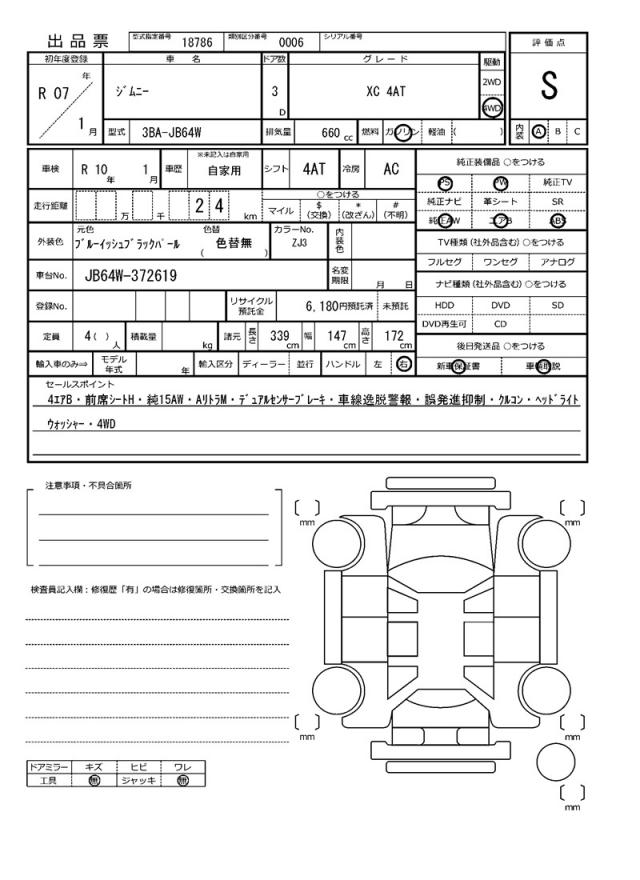 出品票 型式指定番号 18786 類別区分番号 0006 シリアル番号
評価点
S
初年度登録 車名 ドア数 グレード 駆動
R 07 年 1 月 ジムニー 3 D XC 4AT 2WD 4WD
型式 3BA-JB64W 排気量 660 cc 燃料 ガソリン 軽油 ( ) 内装 A B C
車検 R 10 年 1 月 車歴 ※未記入は自家用 自家用 シフト 4AT 冷房 AC
純正装備品 ○をつける
PS PW 純正TV
純正ナビ 革シート SR
純正AW エアB ABS
走行距離 万 千 2 4 km
○をつける
マイル $ (交換) * (改ざん) # (不明)
外装色 元色 ブルーイッシュブラックパール 色替 ( 色替無 ) カラーNo. ZJ3 内装色
TV種類 (社外品含む) ○をつける
フルセグ ワンセグ アナログ
車台No. JB64W-372619 名変期限 月 日
ナビ種類 (社外品含む) ○をつける
HDD DVD SD
DVD再生可 CD
登録No. リサイクル預託金 6,180円預託済 未預託
定員 4 ( ) 人 積載量 kg 諸元 長さ 339 cm 幅 147 cm 高さ 172 cm
後日発送品 ○をつける
新車保証書 車輌取説
輸入車のみ⇒ モデル年式 年 輸入区分 ディーラー 並行 ハンドル 左 右
セールスポイント
4エアB・前席シートH・純15AW・Aリトラ M・デュアルセンサーブレーキ・車線逸脱警報・誤発進抑制・クルコン・ヘッドライト
ウォッシャー・4WD
注意事項・不具合箇所
検査員記入欄：修復歴「有」の場合は修復箇所・交換箇所を記入
mm
mm
mm
mm
mm
ドアミラー キズ ヒビ ワレ
工具 無 ジャッキ 無